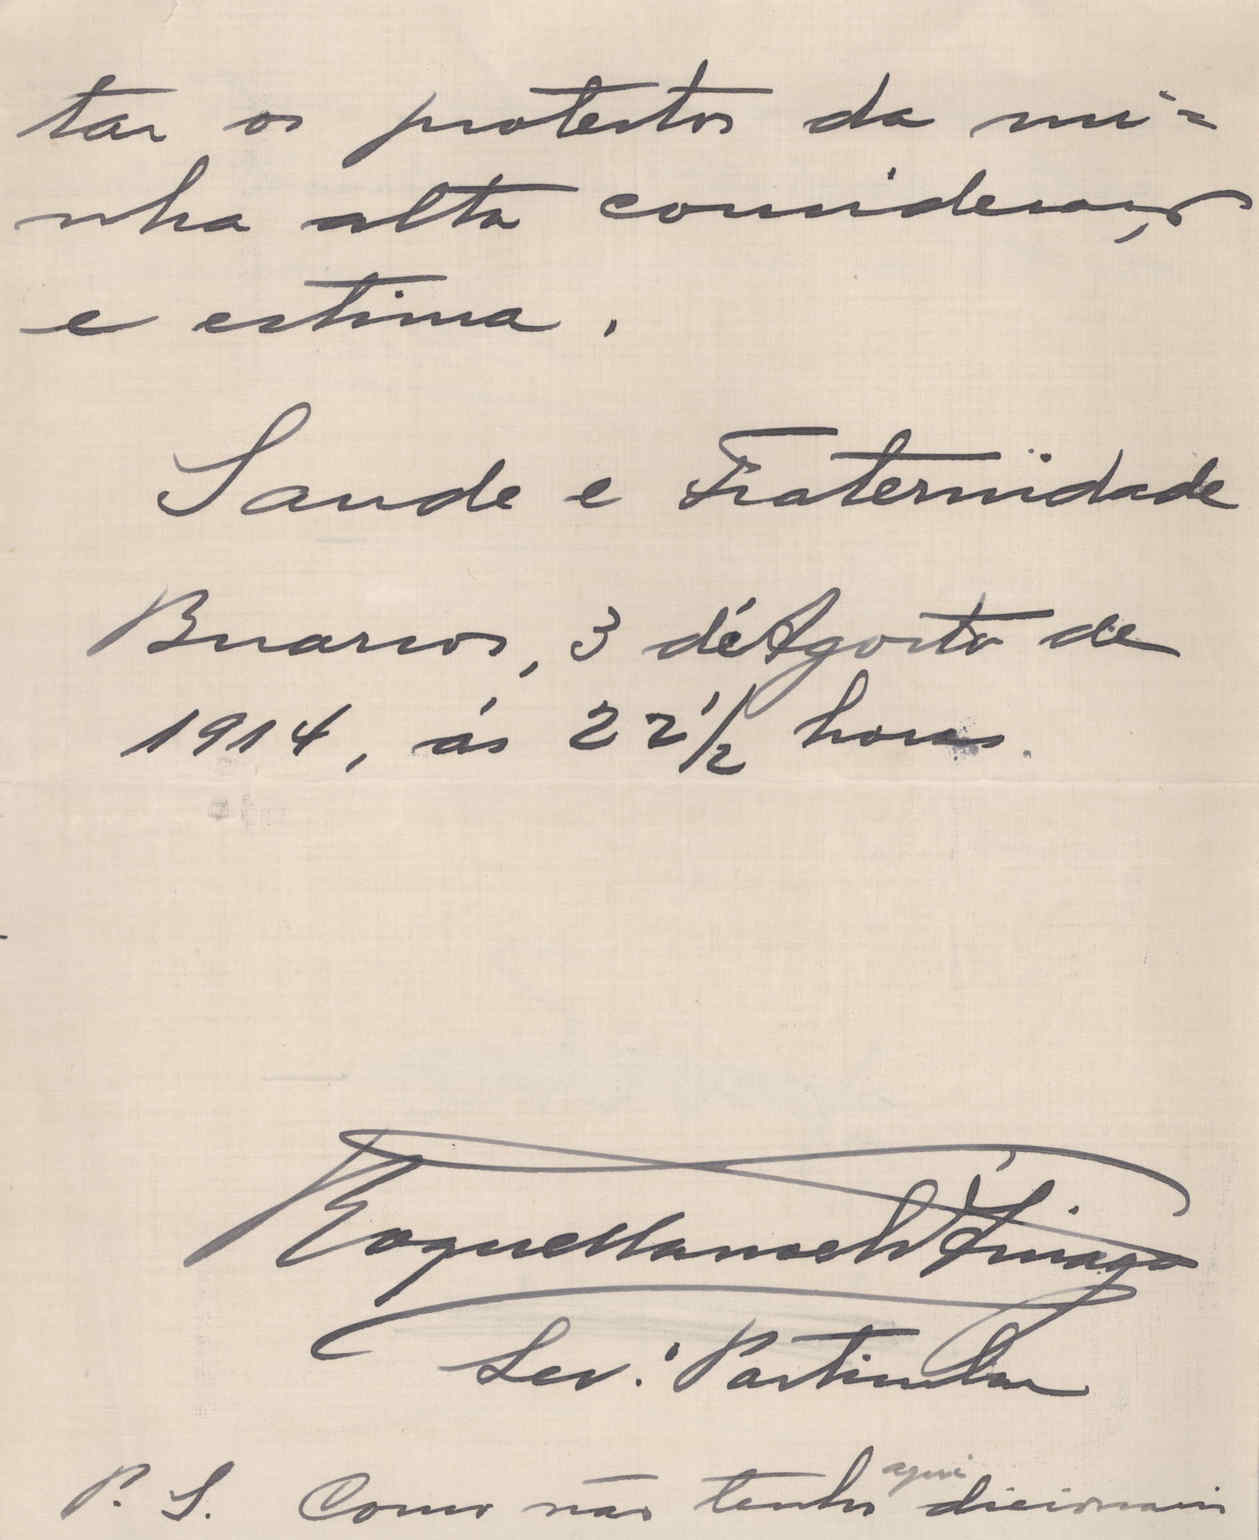 tar os protestos da mi=
nha alta consideração
e estima.
Saude e Fraternidade
Buarcos, 3 dé Agosto de
1914, ás 22 1/2 horas.
Roque Manoel d'Arriaga
Sec. Particular
P. S. Como não tenho aqui dicionario